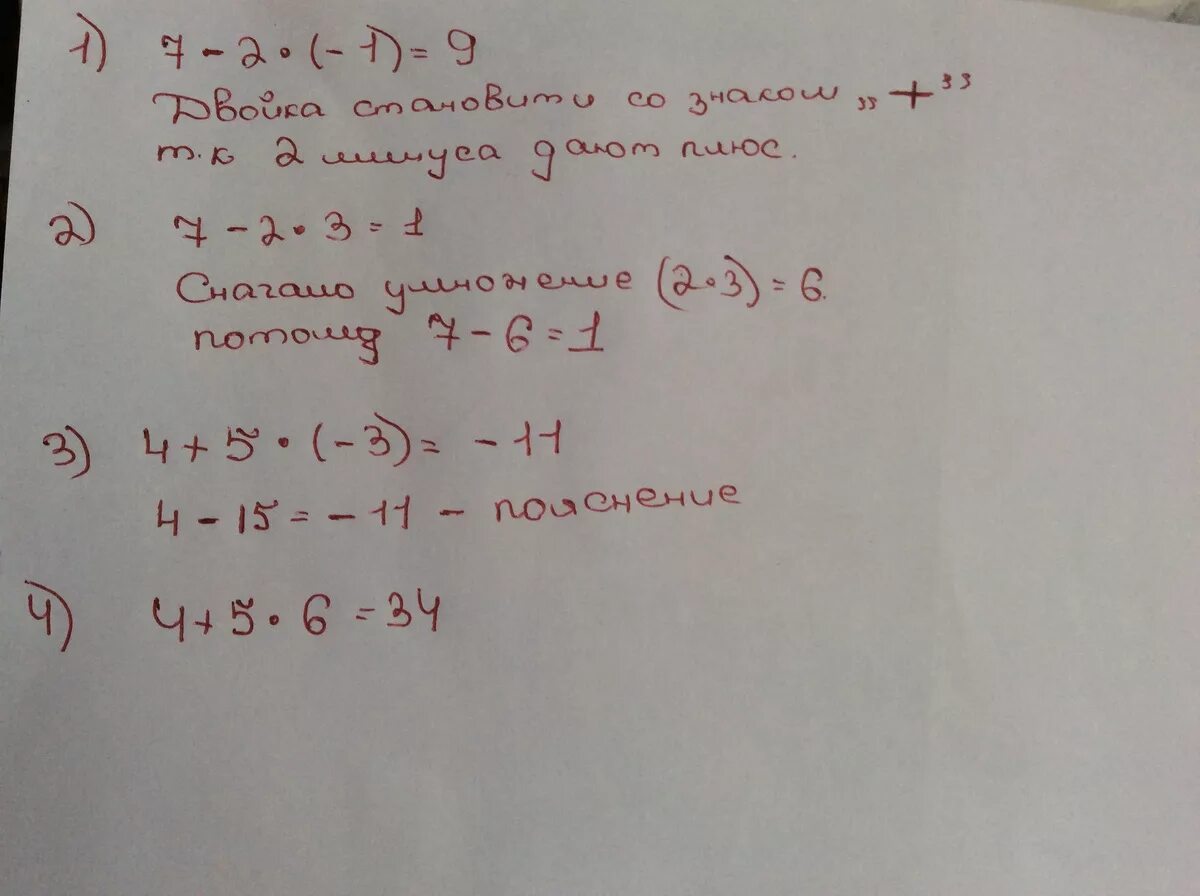 1) 7 - 2 · (-1) = 9
Двойка становити со знаком „+”
т.к 2 минуса дают плюс.
2) 7 - 2 · 3 = 1
Сначало умножение (2·3) = 6.
потомд 7 - 6 = 1
3) 4 + 5 · (-3) = -11
4 - 15 = -11 - пояснение
4) 4 + 5 · 6 = 34